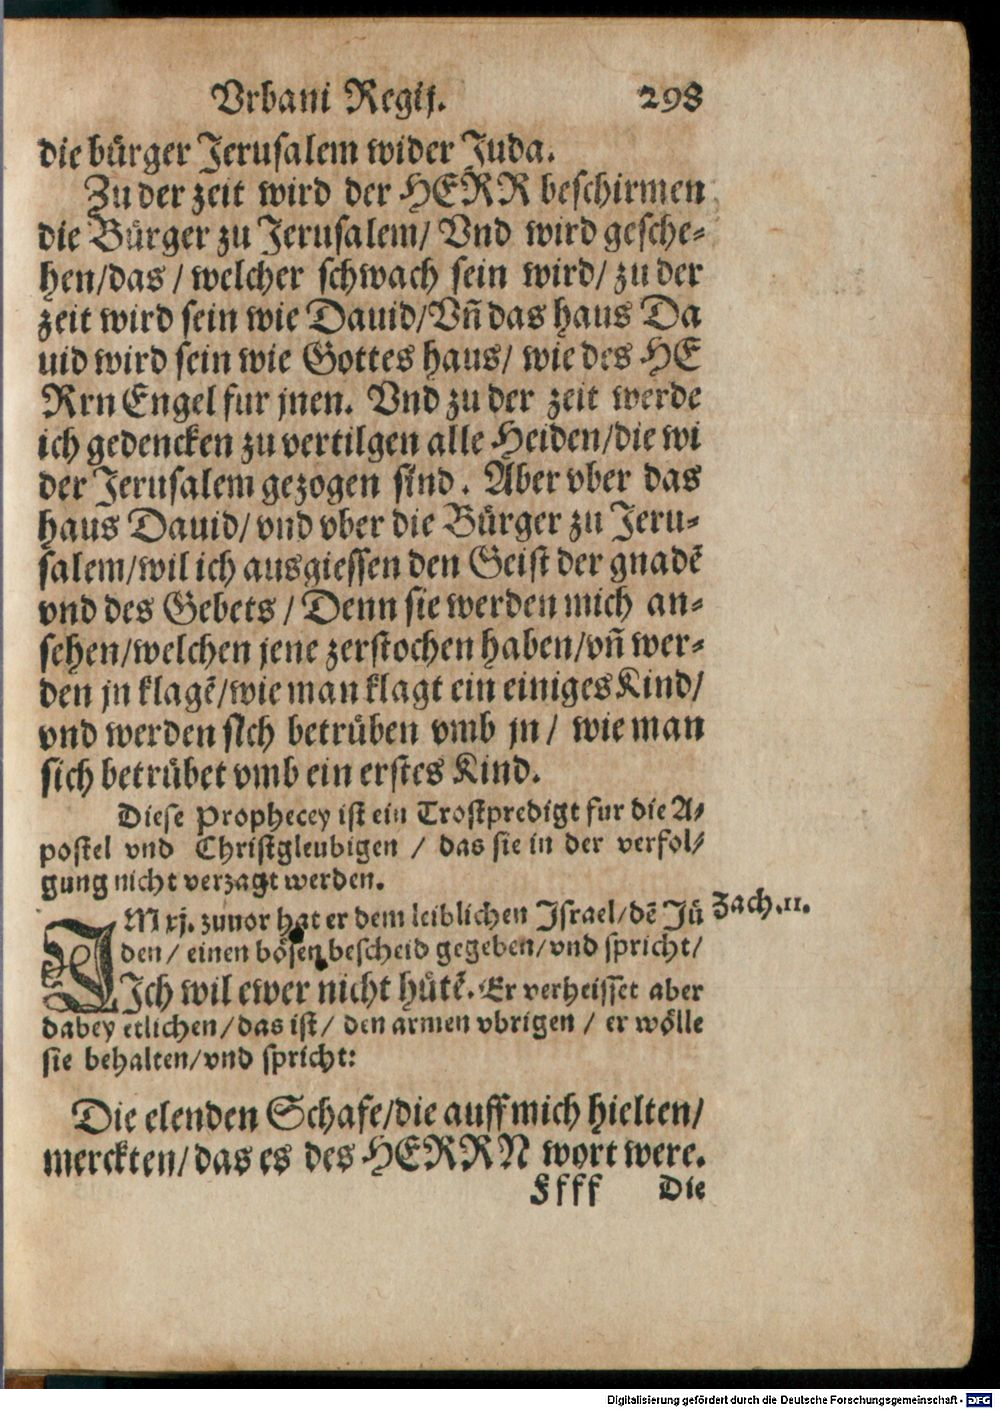 Vrbani Regij. 298
die bürger Jerusalem wider Juda.
Zu der zeit wird der HERR beschirmen
die Bürger zu Jerusalem/ Vnd wird gesche-
hen/das / welcher schwach sein wird/ zu der
zeit wird sein wie Dauid/Vñ das haus Da
uid wird sein wie Gottes haus/ wie des HE
Rrn Engel fur jnen. Vnd zu der zeit werde
ich gedencken zu vertilgen alle Heiden/die wi
der Jerusalem gezogen sind. Aber vber das
haus Dauid/ vnd vber die Bürger zu Jeru-
salem/wil ich ausgiessen den Geist der gnadẽ
vnd des Gebets / Denn sie werden mich an-
sehen/welchen jene zerstochen haben/vñ wer-
den jn klagẽ/wie man klagt ein einiges Kind/
vnd werden sich betrüben vmb jn / wie man
sich betrübet vmb ein erstes Kind.
Diese Prophecey ist ein Trostpredigt fur die A-
postel vnd Christgleubigen / das sie in der verfol-
gung nicht verzagt werden.
IM xj. zuuor hat er dem leiblichen Israel/dẽ Jü
Zach. 11.
den / einen bösen bescheid gegeben/vnd spricht/
Ich wil ewer nicht hütẽ. Er verheisset aber
dabey etlichen/das ist/ den armen vbrigen / er wölle
sie behalten/vnd spricht:
Die elenden Schafe/die auff mich hielten/
merckten/das es des HERRN wort were.
Ffff Die
Digitalisierung gefördert durch die Deutsche Forschungsgemeinschaft - DFG